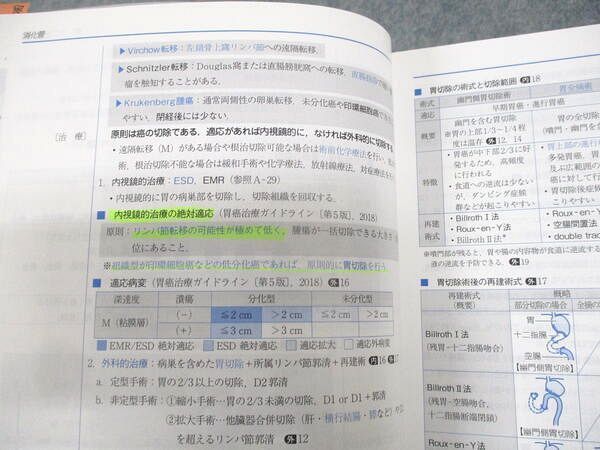 消化管
▶Virchow転移：左鎖骨上窩リンパ節への遠隔転移.
▶Schnitzler転移：Douglas窩または直腸膀胱窩への転移.
瘤を触知することがある.
▶Krukenberg腫瘍：通常両側性の卵巣転移. 未分化癌や印環細胞癌
やすい. 閉経後には少ない.
〔治 療〕
原則は癌の切除である. 適応があれば内視鏡的に, なければ外科的に切除する
・遠隔転移（M）がある場合や根治切除可能な場合は術前化学療法を行い,
術, 根治切除不能な場合は緩和手術や化学療法, 放射線療法, 対症療法を
1. 内視鏡的治療：ESD, EMR（参照 A-29）
・内視鏡的に胃の病巣部を切除し, 切除組織を回収する.
■ 内視鏡的治療の絶対適応（胃癌治療ガイドライン〔第5版〕, 2018）
原則：リンパ節転移の可能性が極めて低く, 腫瘍が一括切除できる大きさ
位にあること.
※組織型が印環細胞癌などの低分化癌であれば, 原則的に胃切除を行う
■ 適応病変（胃癌治療ガイドライン〔第5版〕, 2018）外16
深達度 潰瘍 分化型 未分化型
M（粘膜層） (−) ≦2 cm ＞2 cm ≦2 cm ＞2 cm
(＋) ≦3 cm ＞3 cm
EMR/ESD 絶対適応 ESD 絶対適応 適応拡大 適応外病変
2. 外科的治療：病巣を含めた胃切除＋所属リンパ節郭清＋再建術 内16
a. 定型手術：胃の2/3以上の切除, D2郭清
b. 非定型手術：①縮小手術…胃の2/3未満の切除, D1 or D1＋郭清
②拡大手術…他臓器合併切除（肝・横行結腸・膵など）や
を超えるリンパ節郭清 外12
■ 胃切除の術式と切除範囲 内18
術式 幽門側胃切除術 胃全摘術
適応 早期胃癌・進行胃癌
概要
幽門を含む胃切除
※胃の上部1/3〜1/4程
度は温存 外12, 14
胃の全切除
（噴門・幽門を
特徴
・胃癌が中下部2/3に好
発するため, 高頻度
に行われる
・食道への逆流は少ない
が, ダンピング症候
群などが起こりやすい
・胃上部の進行
多発胃癌,
及ぶ広範囲の
癌に対して行
・胃切除後症
こりやすい
再建
術式
・Billroth I法
・Roux-en-Y法
・Billroth II法*
・Roux-en-Y
・空腸間置法
・double trac
*噴門部が残ると, 胃や腸の内容物が食道に逆流する
液の逆流を予防できる. 外19
■ 胃切除術後の再建術式 外17
再建術式
（概要）
概略
部分切除の場合
Billroth I法
（残胃-十二指腸吻合）
胃
十二指腸
空腸
【幽門側胃切除】
Billroth II法
（残胃-空腸吻合,
十二指腸断端閉鎖）
【幽門側胃切除】
Roux-en-Y法